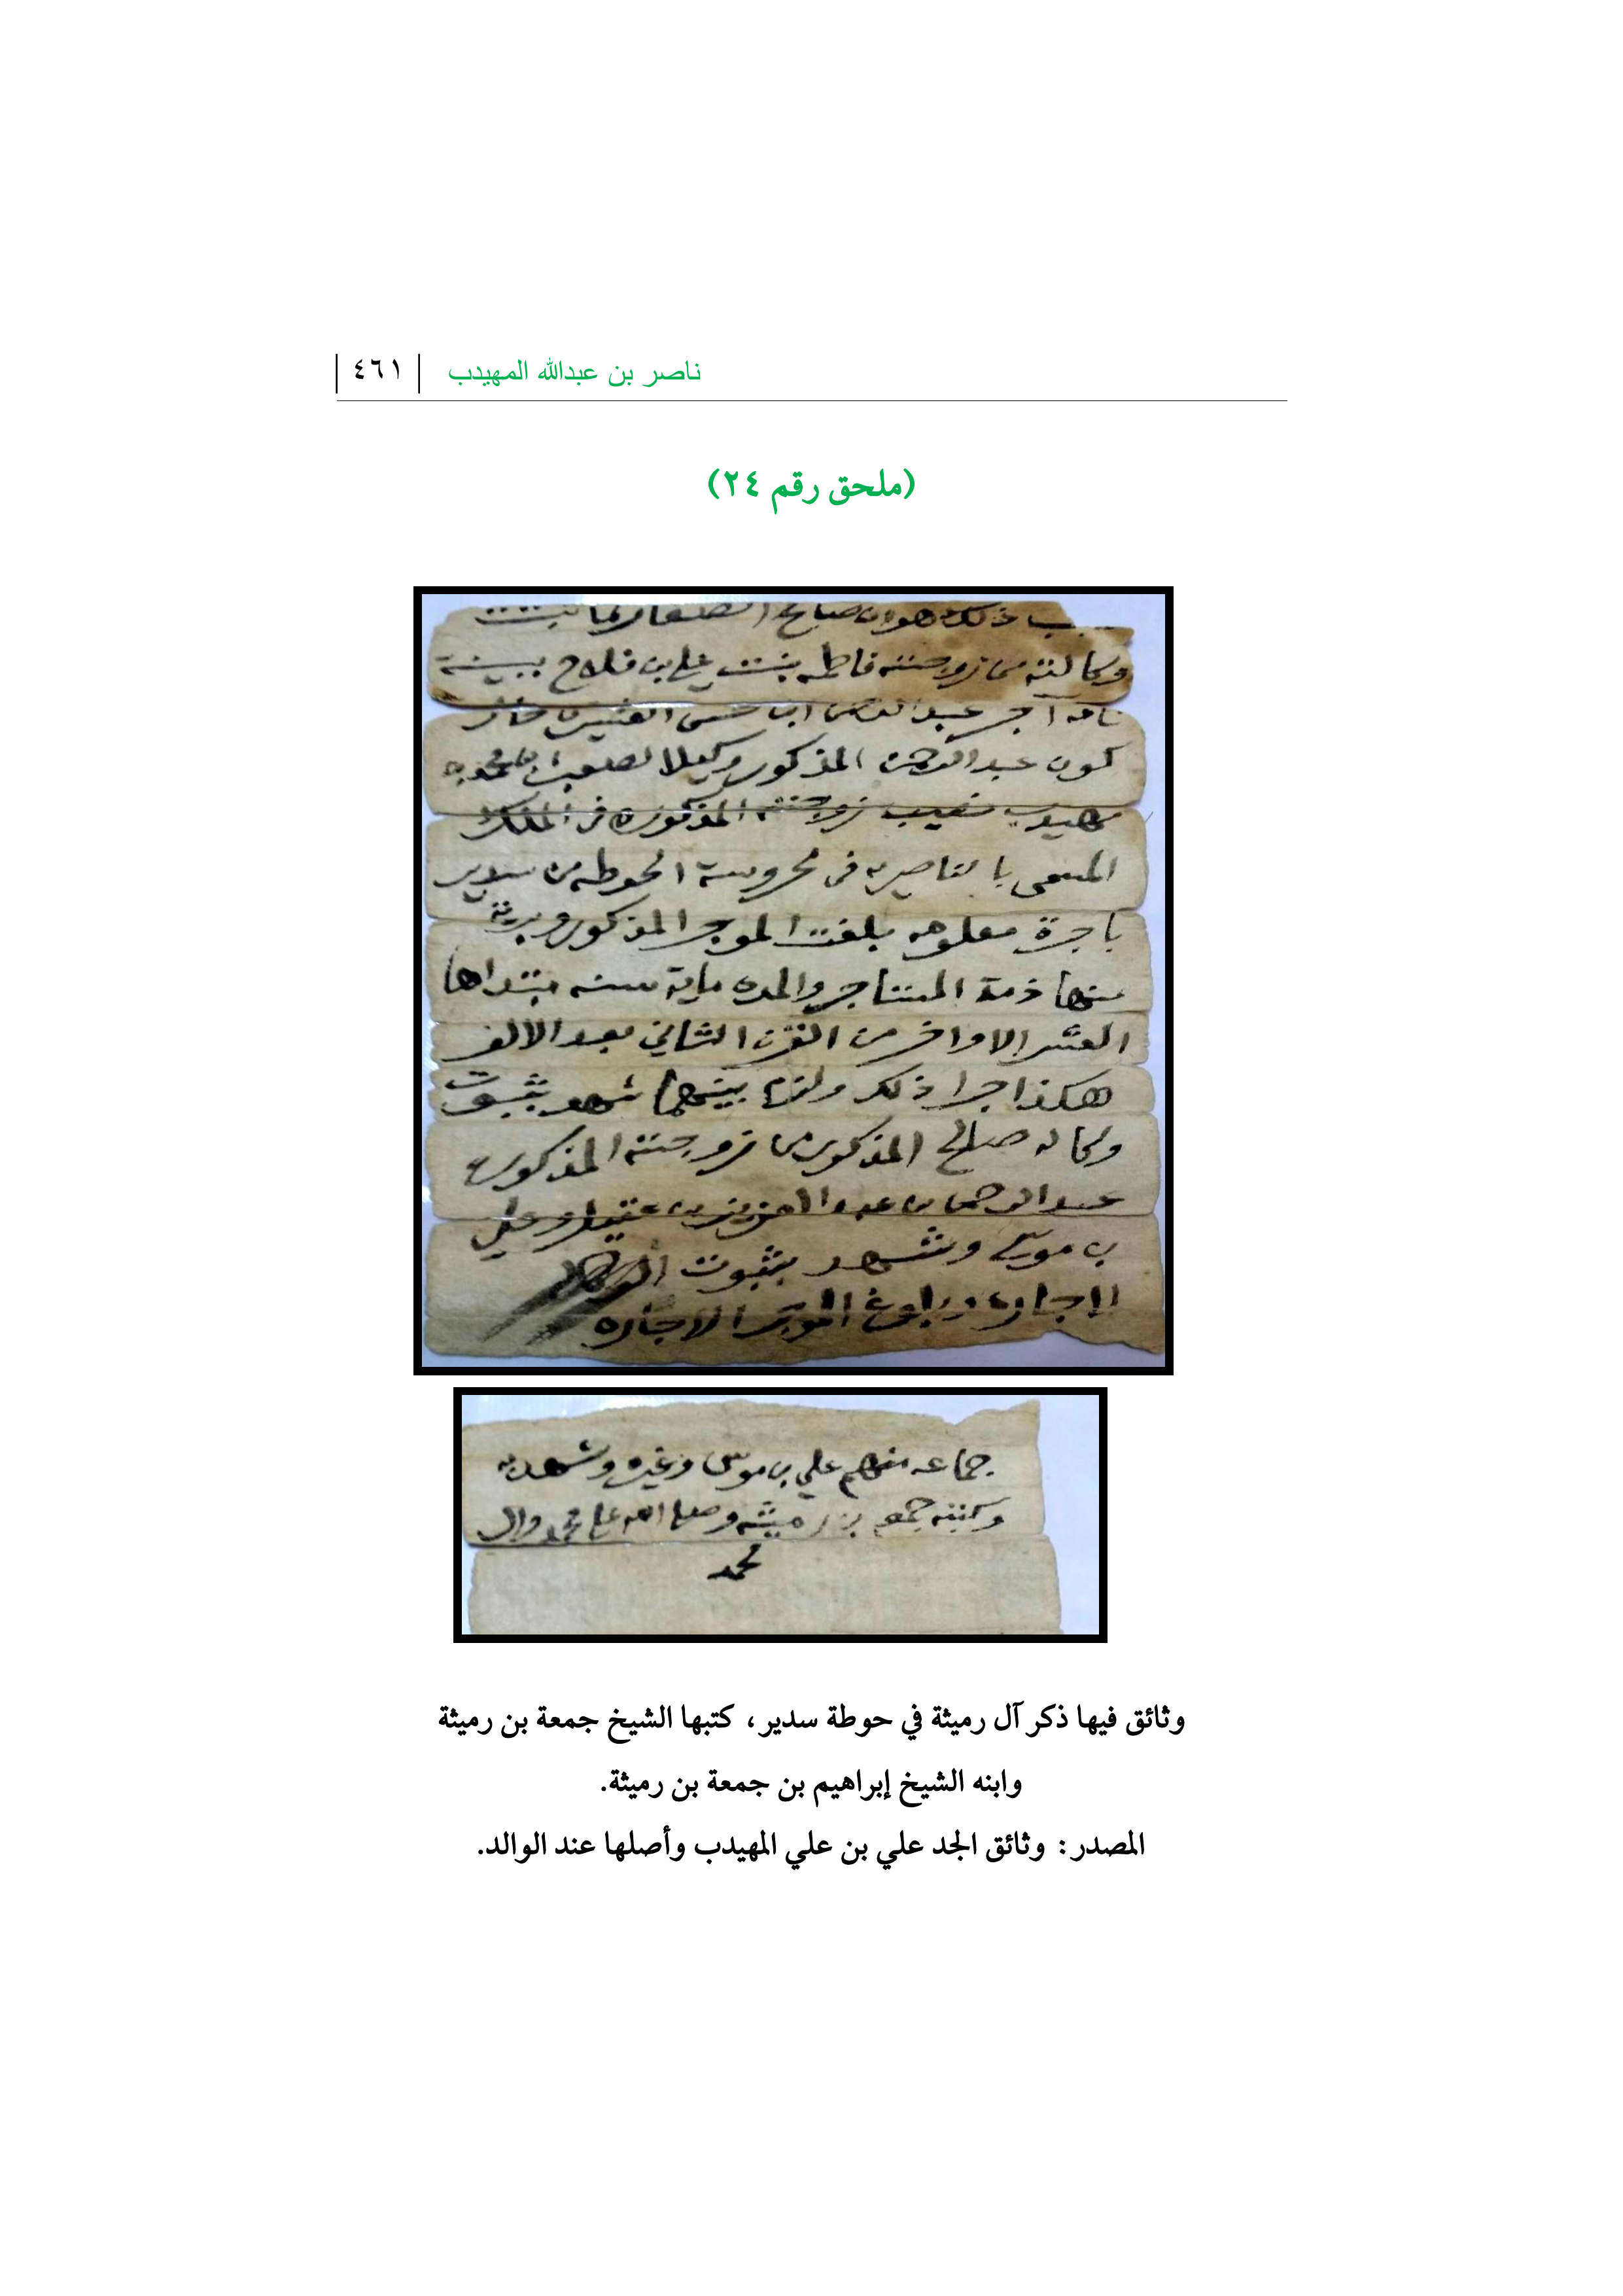 ناصر بن عبدالله المهيدب | ٤٦١ |
(ملحق رقم ٢٤)
ذلك هو ان صالح بما ثبت
وكالته من زوجته فاطمه بنت علي بن فلاح ببينة
اجر عبدالرحمن
كون عبدالرحمن المذكور وكيلا محمد بن
مهيدب نصيب زوجته المذكوره في الملك
المسمى بالناصريه في محروسة الحوطه من سدير
باجرة معلومه بلغت الموجر المذكور وبرية
منها ذمة المستاجر والمده ماية سنه مبتداها
العشر الاواخر من القرن الثاني بعد الالف
هكذا جرا ذلك ولزم بينهما شهد بثبوت
وكاله صالح المذكور من زوجته المذكوره
عبدالرحمن بن عبدالعزيز بن عقيل وعلي
بن موسى وشهد بثبوت
الاجاره وبلوغ الموجر الاجاره
جماعه منهم علي بن موسى وغيره وشهد به
وكتبه جمعه بن رميثه وصلى الله على محمد وال
محمد
وثائق فيها ذكر آل رميثة في حوطة سدير، كتبها الشيخ جمعة بن رميثة
وابنه الشيخ إبراهيم بن جمعة بن رميثة.
المصدر: وثائق الجد علي بن علي المهيدب وأصلها عند الوالد.